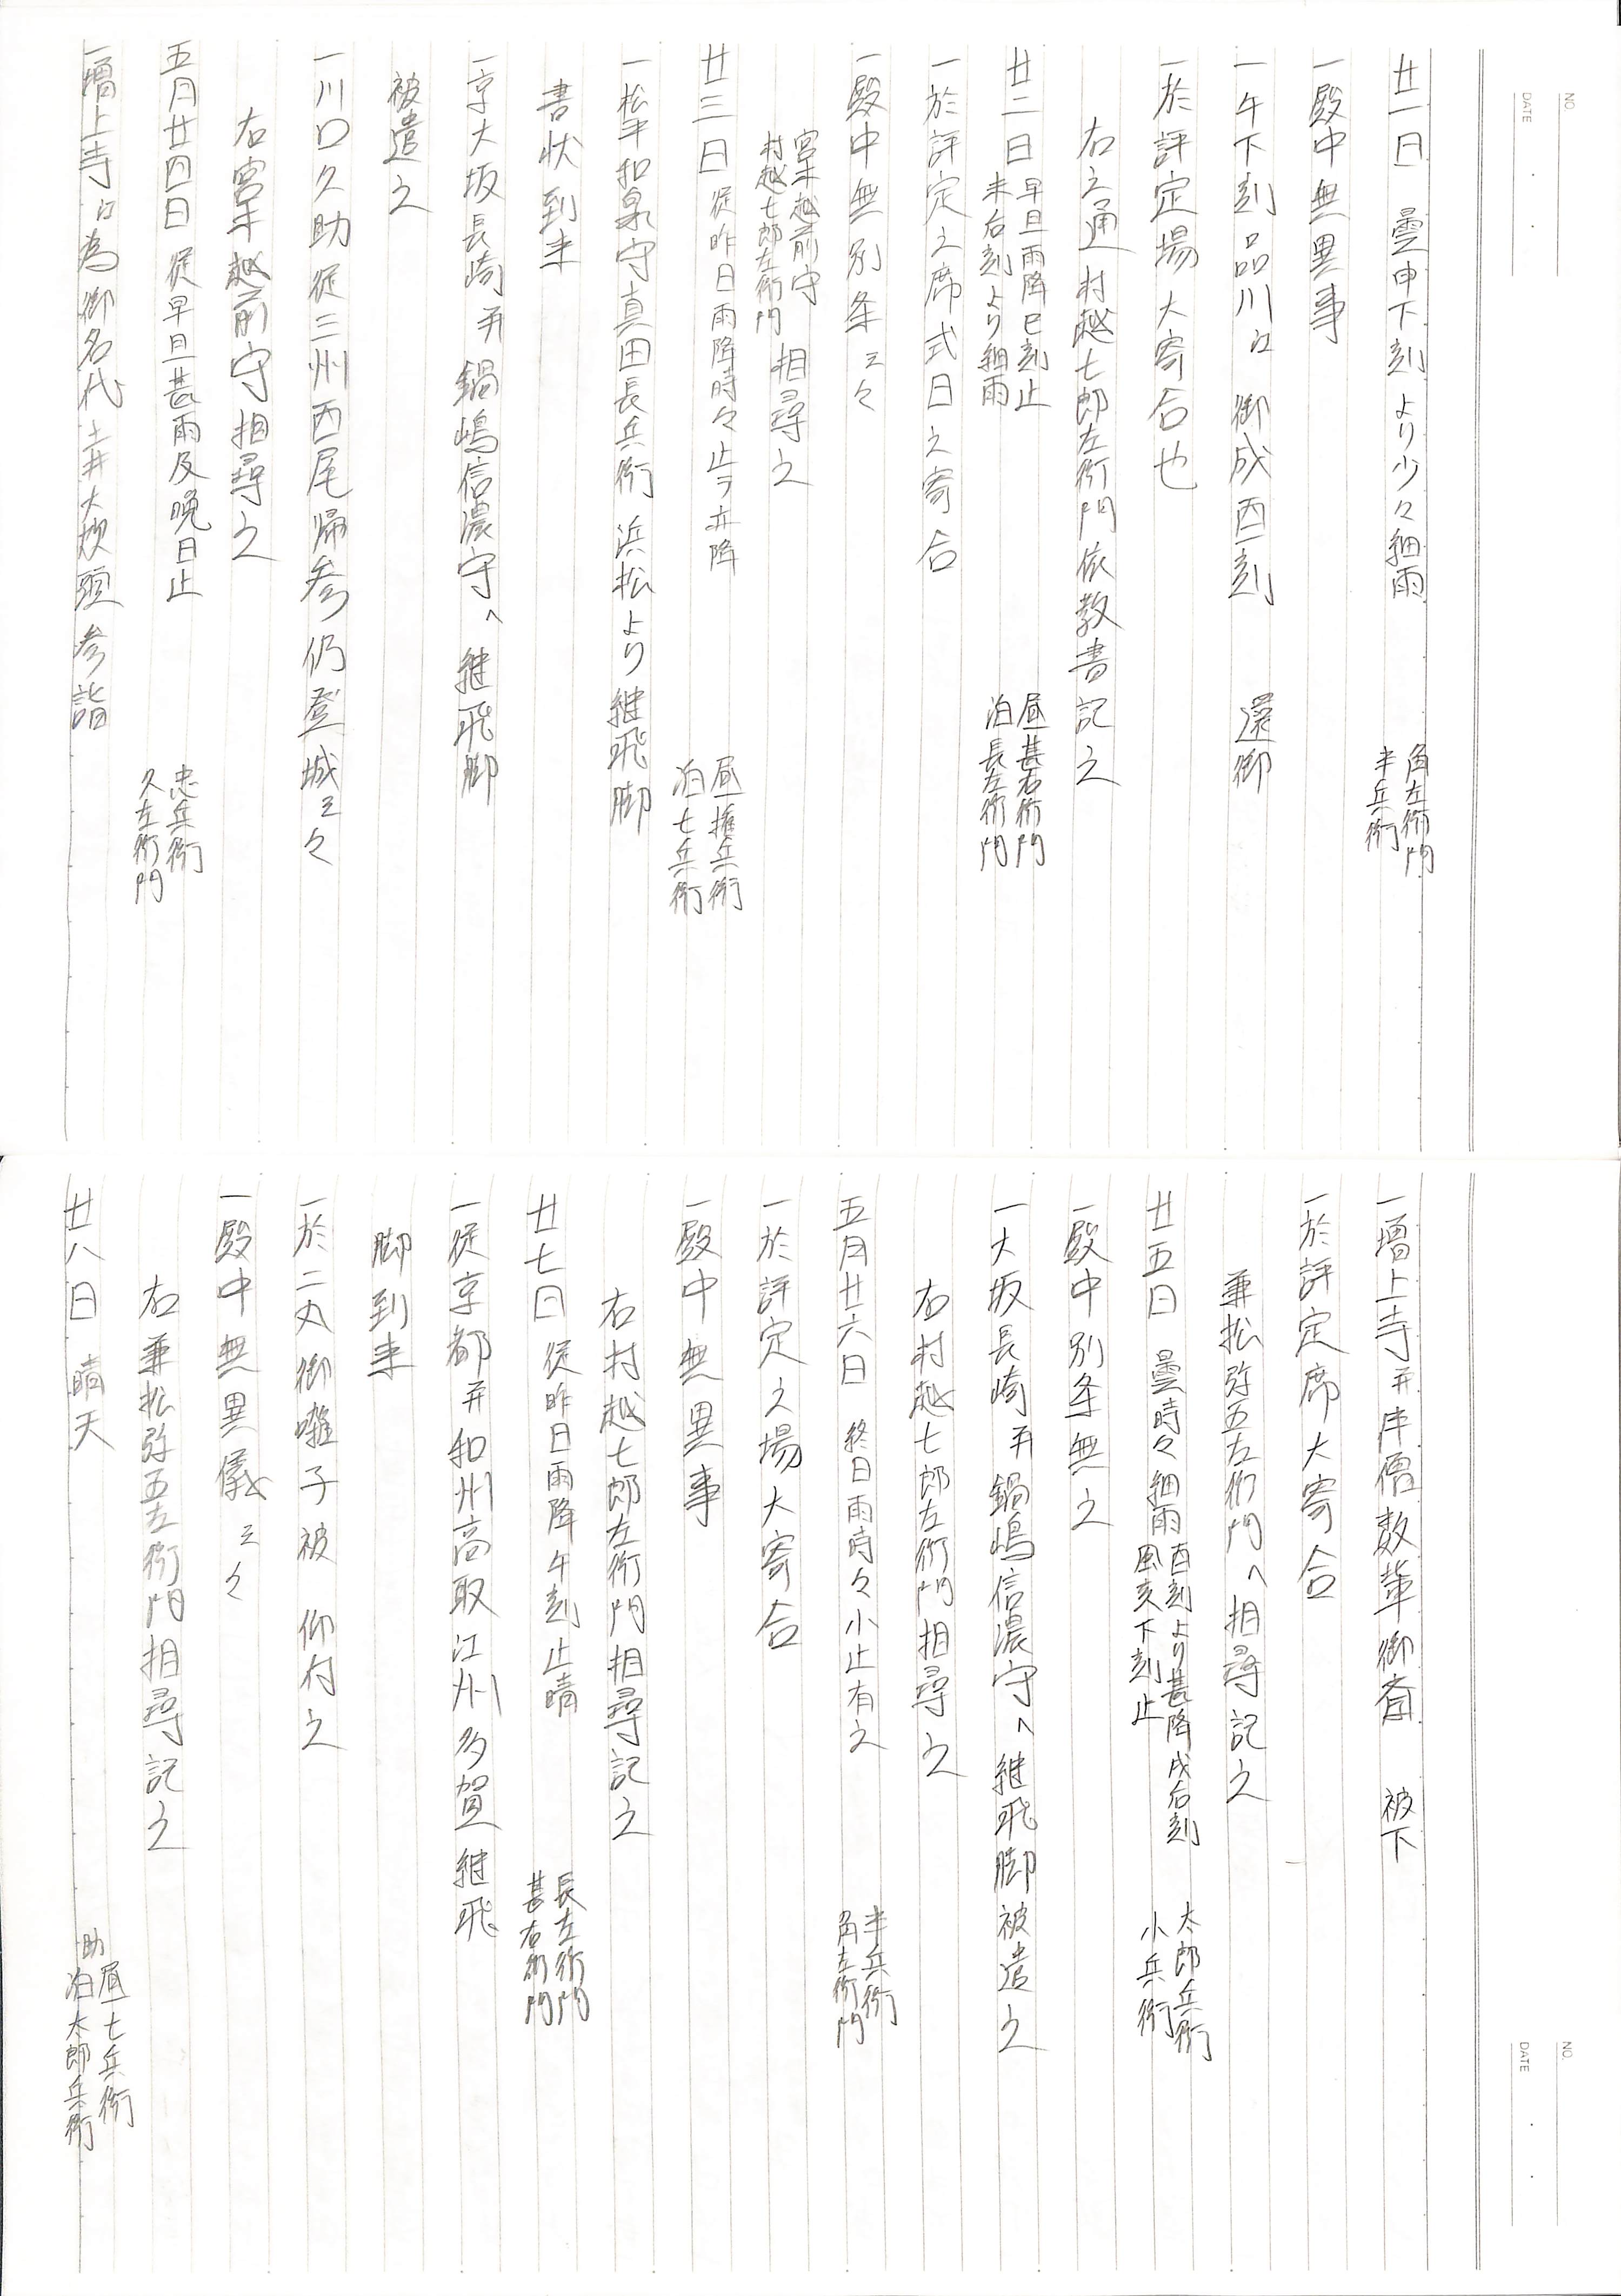 NO.
DATE
廿一日 曇申下刻より少々細雨
角左衛門
半兵衛
一殿中無異事
一午下刻品川江 御成酉刻 還御
一於評定場大寄合也
右之通村越七郎左衛門依教書記之
廿二日 早旦雨降巳刻止
未右刻より細雨
昼甚右衛門
泊長左衛門
一於評定之席式日之寄合
一殿中無別条云々
宮木越前守
村越七郎左衛門
相尋之
廿三日 従昨日雨降時々止ヲ亦降
昼権兵衛
泊七兵衛
一松平和泉守真田長兵衛浜松より継飛脚
書状到来
一京大坂長崎并鍋嶋信濃守へ継飛脚
被遣之
一川口久助従三州西尾帰参仍登城云々
右宮木越前守相尋之
五月廿四日 従早旦甚雨及晩日止
忠兵衛
久左衛門
一増上寺江為御名代土井大炊頭参詣
NO.
DATE
一増上寺并伴僧数輩御斎 被下
一於評定席大寄合
兼松弥五左衛門へ相尋記之
廿五日 曇時々細雨
酉刻より甚降戌右刻
風亥下刻止
太郎兵衛
小兵衛
一殿中別条無之
一大坂長崎并鍋嶋信濃守へ継飛脚被遣之
右村越七郎左衛門相尋之
五月廿六日 終日雨時々小止有之
半兵衛
角左衛門
一於評定之場大寄合
一殿中無異事
右村越七郎左衛門相尋記之
廿七日 従昨日雨降午刻止晴
長左衛門
甚右衛門
一従京都并和州高取江州多賀継飛
脚到来
一於二丸御囃子被 仰付之
一殿中無異儀云々
右兼松弥五左衛門相尋記之
廿八日 晴天
昼七兵衛
助泊太郎兵衛